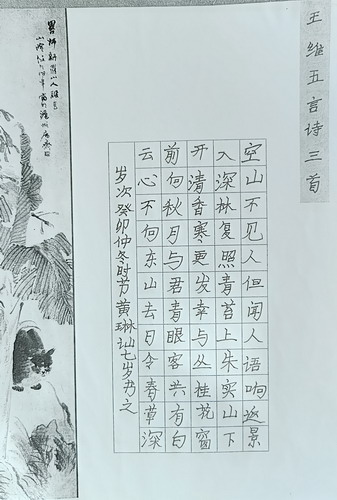 王维五言诗三首
空山不见人但闻人语响返景
入深林复照青苔上朱实山下
开清香寒更发幸与丛桂花窗
前向秋月与君青眼客共有白
云心不向东山去日令春草深
岁次癸卯仲冬时节黄琳七岁